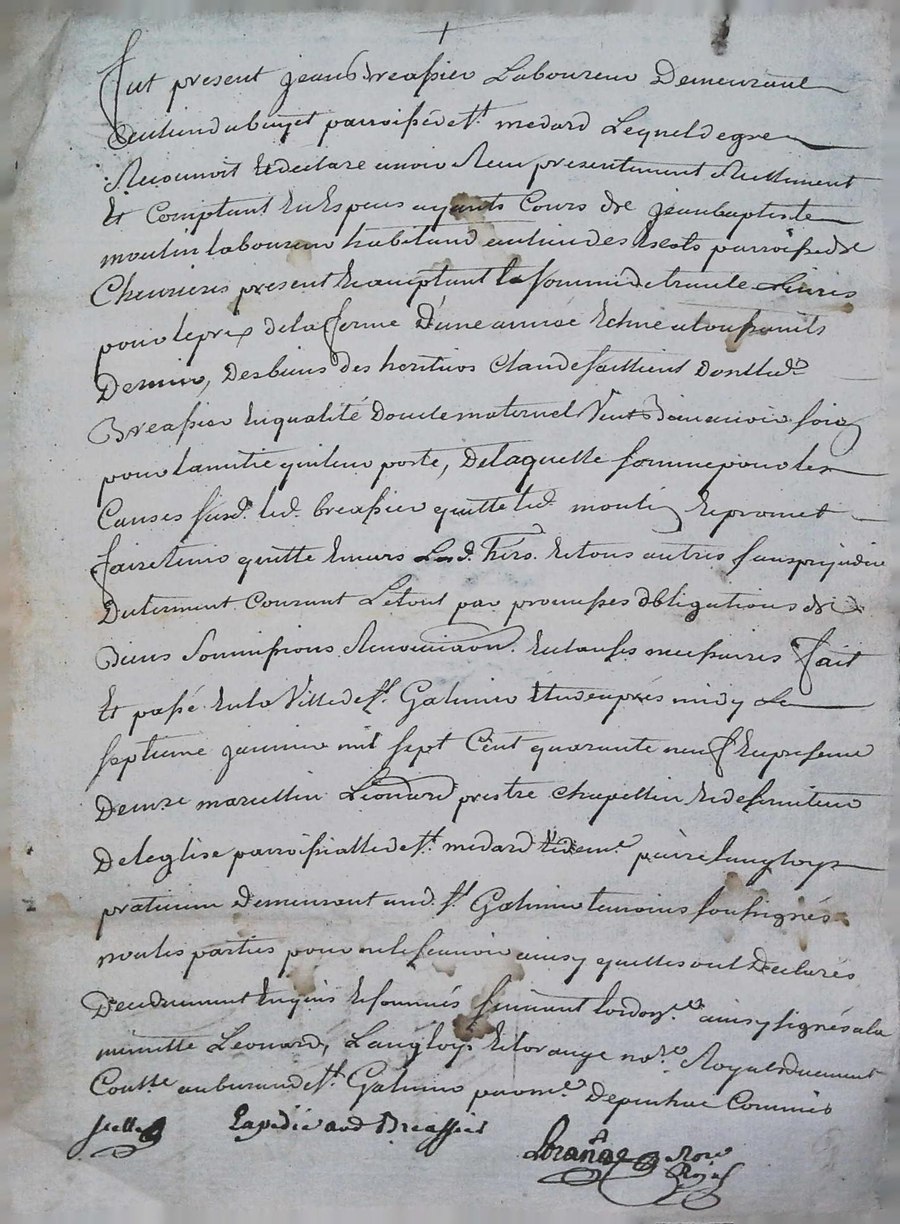 fut present jean Breassier Laboureur Demeurant
au lieu du buyet parroisse de st. medard Lequel de gré
Reconnoit Et declare avoir Receu presentement Reellement
Et Comptant En Especes ayants Cours de jean baptiste
moulin laboureur habitand au lieu des parroisse de
Chevrieres present Et acceptant la somme de trante Livres
pour le prix de la ferme D'une année Echue a la toussaints
Dernier, Des biens des heritiers Claude Dont led.
Breassier En qualité D'oncle maternel Veut bien avoir soin
pour lamitié quil leur porte, De laquelle somme pour les
Causes susd. led. breassier quitte led. moulin Et promet
faire tenir quitte Envers Lesd. hers. Et tous autres sans prejudice
Du terme Courant Le tout par promesses obligations de
Biens Soumissions Renonciaon. Et clauses necessaires fait
Et passé En la Ville de st. Galmier Etude aprés midy Le
septieme janvier mil sept Cent quarante neuf En presence
De mre marcellin Léonard prestre Chapellin Et deserviteur
De leglise parroissialle de st. medard Et de me. pierre langloys
praticien Demeurant aud. st. Galmier temoins soussignés
non les parties pour ne le scavoir ainsy quelles ont Declarés
De ce duement Enquis Et sommés suivant lordonce. ainsy signés a la
minutte Léonard, Langloys Et lorange nore. Royal duement
Coutte. au bureau de st. Galmier par me. Depinhac Commis
scellé Expedié aud Breassier
Lorange nore
Royal